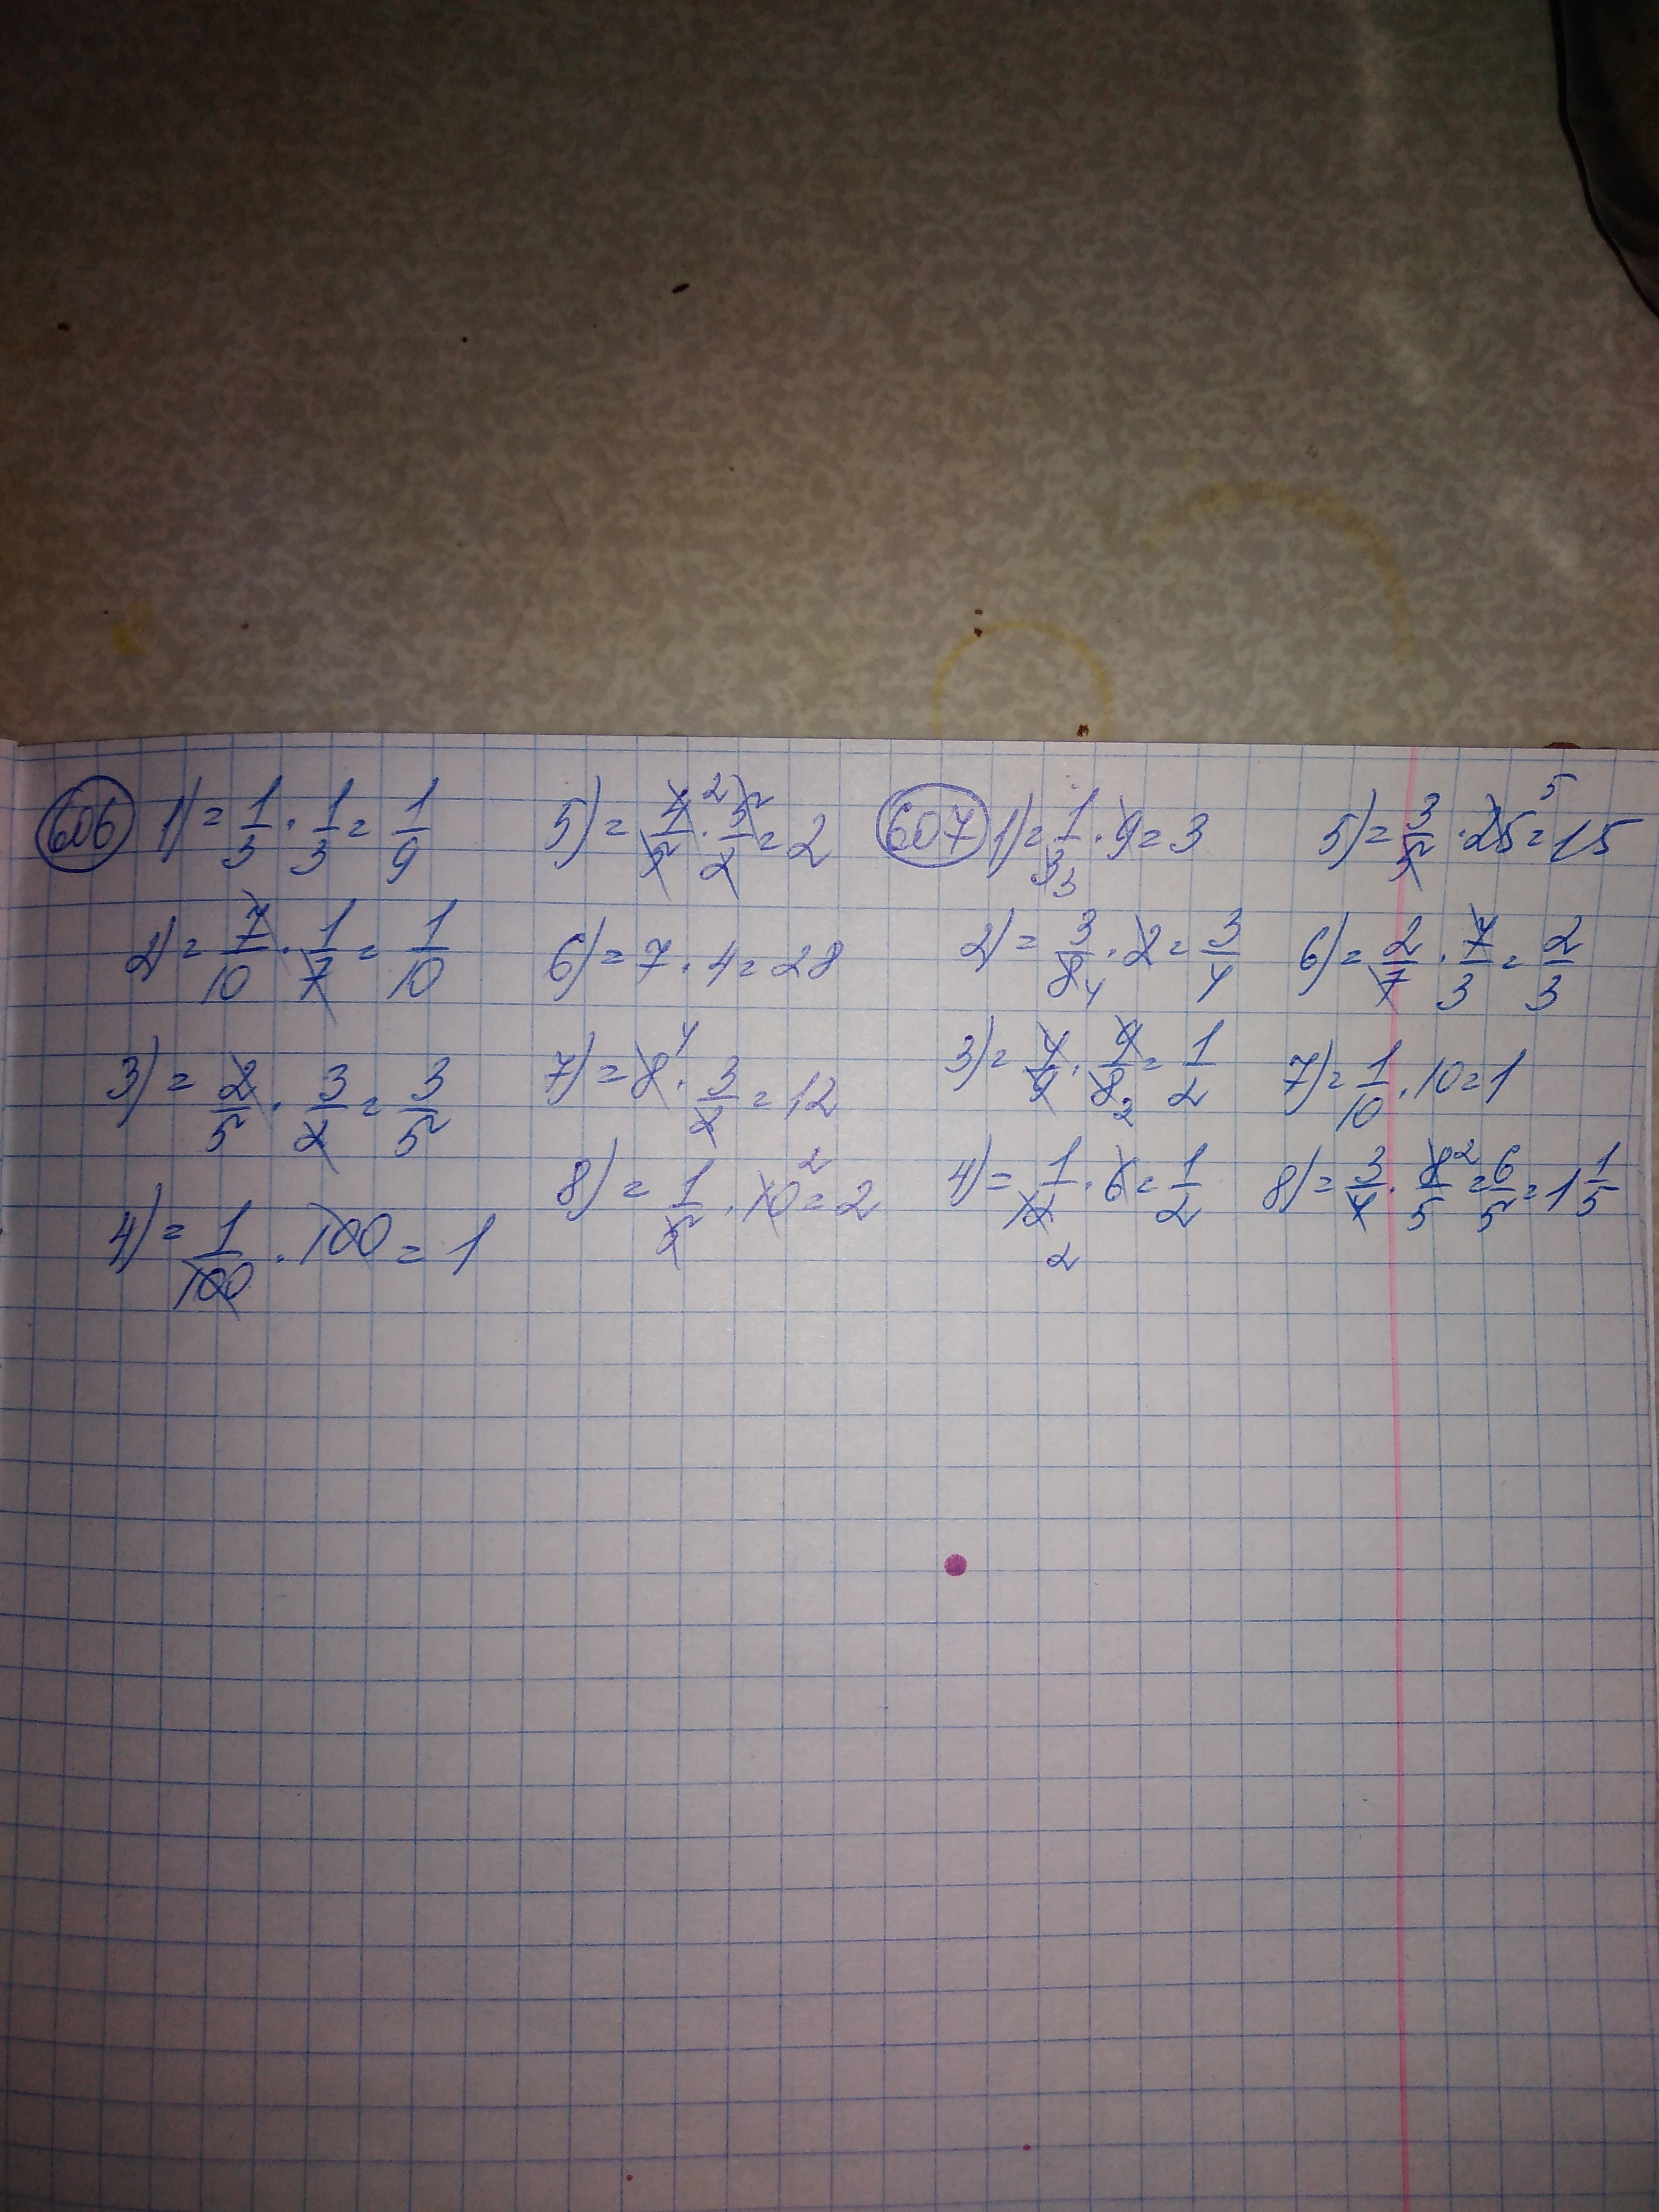 606 1) = 1/3 · 1/3 = 1/9
2) = 7/10 · 1/7 = 1/10
3) = 2/5 · 3/2 = 3/5
4) = 1/100 · 100 = 1
5) = 4/5 2 · 5/2 = 2
6) = 7 · 4 = 28
7) = 8 4 · 3/2 = 12
8) = 1/5 · 10 2 = 2
607 1) = 1/3 3 · 9 = 3
2) = 3/8 4 · 2 = 3/4
3) = 4/9 · 9/8 2 = 1/2
4) = 1/12 2 · 6 = 1/2
5) = 3/5 · 25 5 = 15
6) = 2/7 · 7/3 = 2/3
7) = 1/10 · 10 = 1
8) = 3/4 · 8/5 2 = 6/5 = 1 1/5